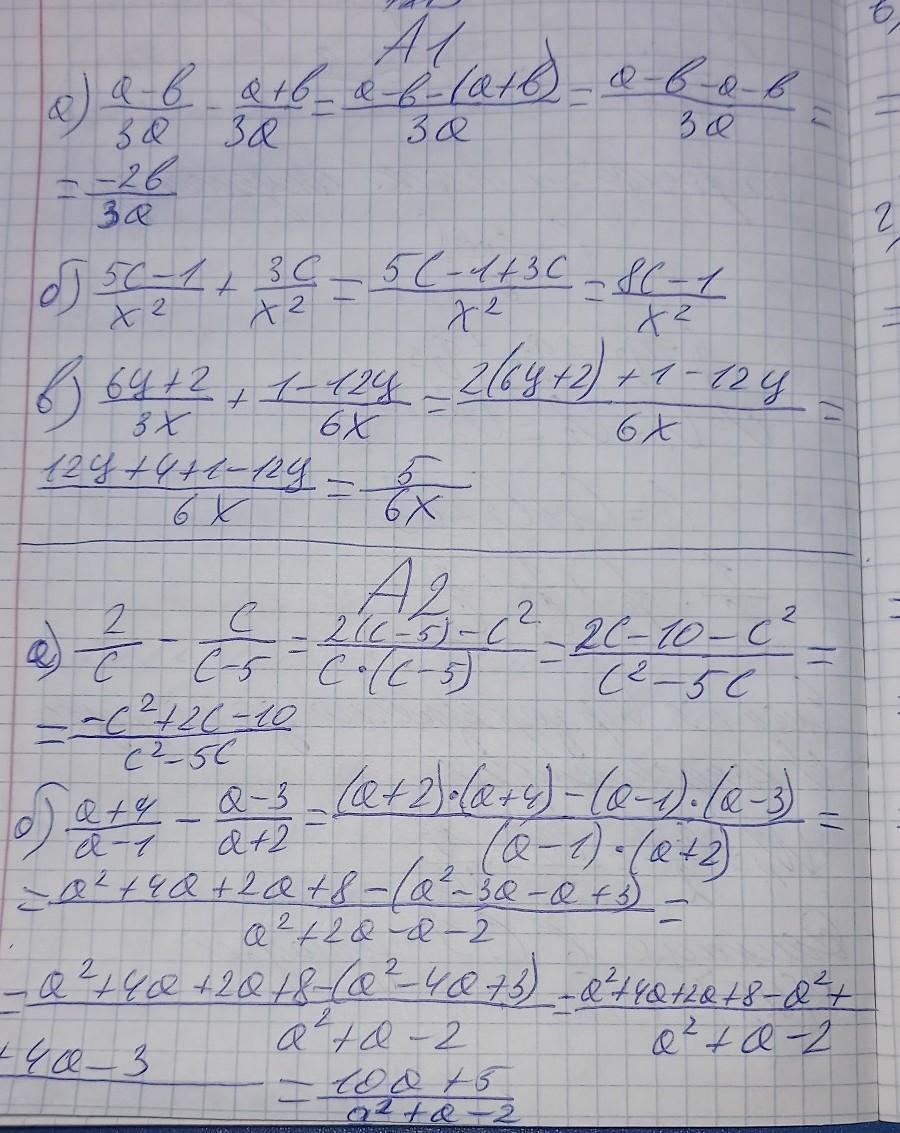 A1
а) (a-b)/(3a) - (a+b)/(3a) = (a-b-(a+b))/(3a) = (a-b-a-b)/(3a) =
= (-2b)/(3a)
б) (5c-1)/(x²) + (3c)/(x²) = (5c-1+3c)/(x²) = (8c-1)/(x²)
в) (6y+2)/(3x) + (1-12y)/(6x) = (2(6y+2)+1-12y)/(6x) =
(12y+4+1-12y)/(6x) = 5/(6x)
A2
а) 2/c - c/(c-5) = (2(c-5)-c²)/(c·(c-5)) = (2c-10-c²)/(c²-5c) =
= (-c²+2c-10)/(c²-5c)
б) (a+4)/(a-1) - (a-3)/(a+2) = ((a+2)·(a+4)-(a-1)·(a-3))/((a-1)·(a+2)) =
= (a²+4a+2a+8-(a²-3a-a+3))/(a²+2a-a-2) =
= (a²+4a+2a+8-(a²-4a+3))/(a²+a-2) = (a²+4a+2a+8-a²+
+4a-3)/(a²+a-2) = (10a+5)/(a²+a-2)